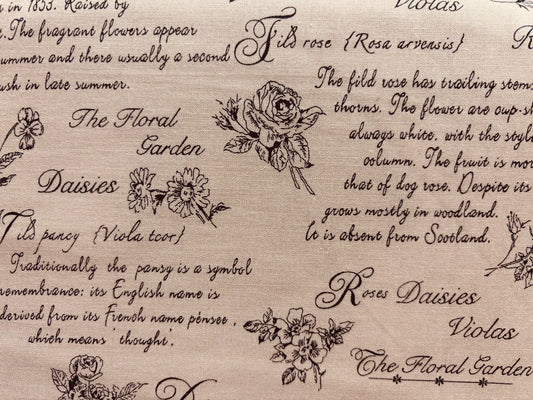 in 1833. Raised by
. The fragrant flowers appear
summer and there usually a second
ush in late summer.
Violas
Fild rose {Rosa arvensis}
R
The fild rose has trailing stems
thorns. The flower are oup-s
always white, with the styl
oolumn. The fruit is mor
that of dog rose. Despite its
grows mostly in woodland.
lt is absent from Sootland.
The Floral
Garden
Daisies
Tils pancy {Viola tcor}
Traditionally the pansy is a symbol
remembrance: its English name is
derived from its French name pénsee,
which means 'thought'.
Roses Daisies
Violas
The Floral Garden